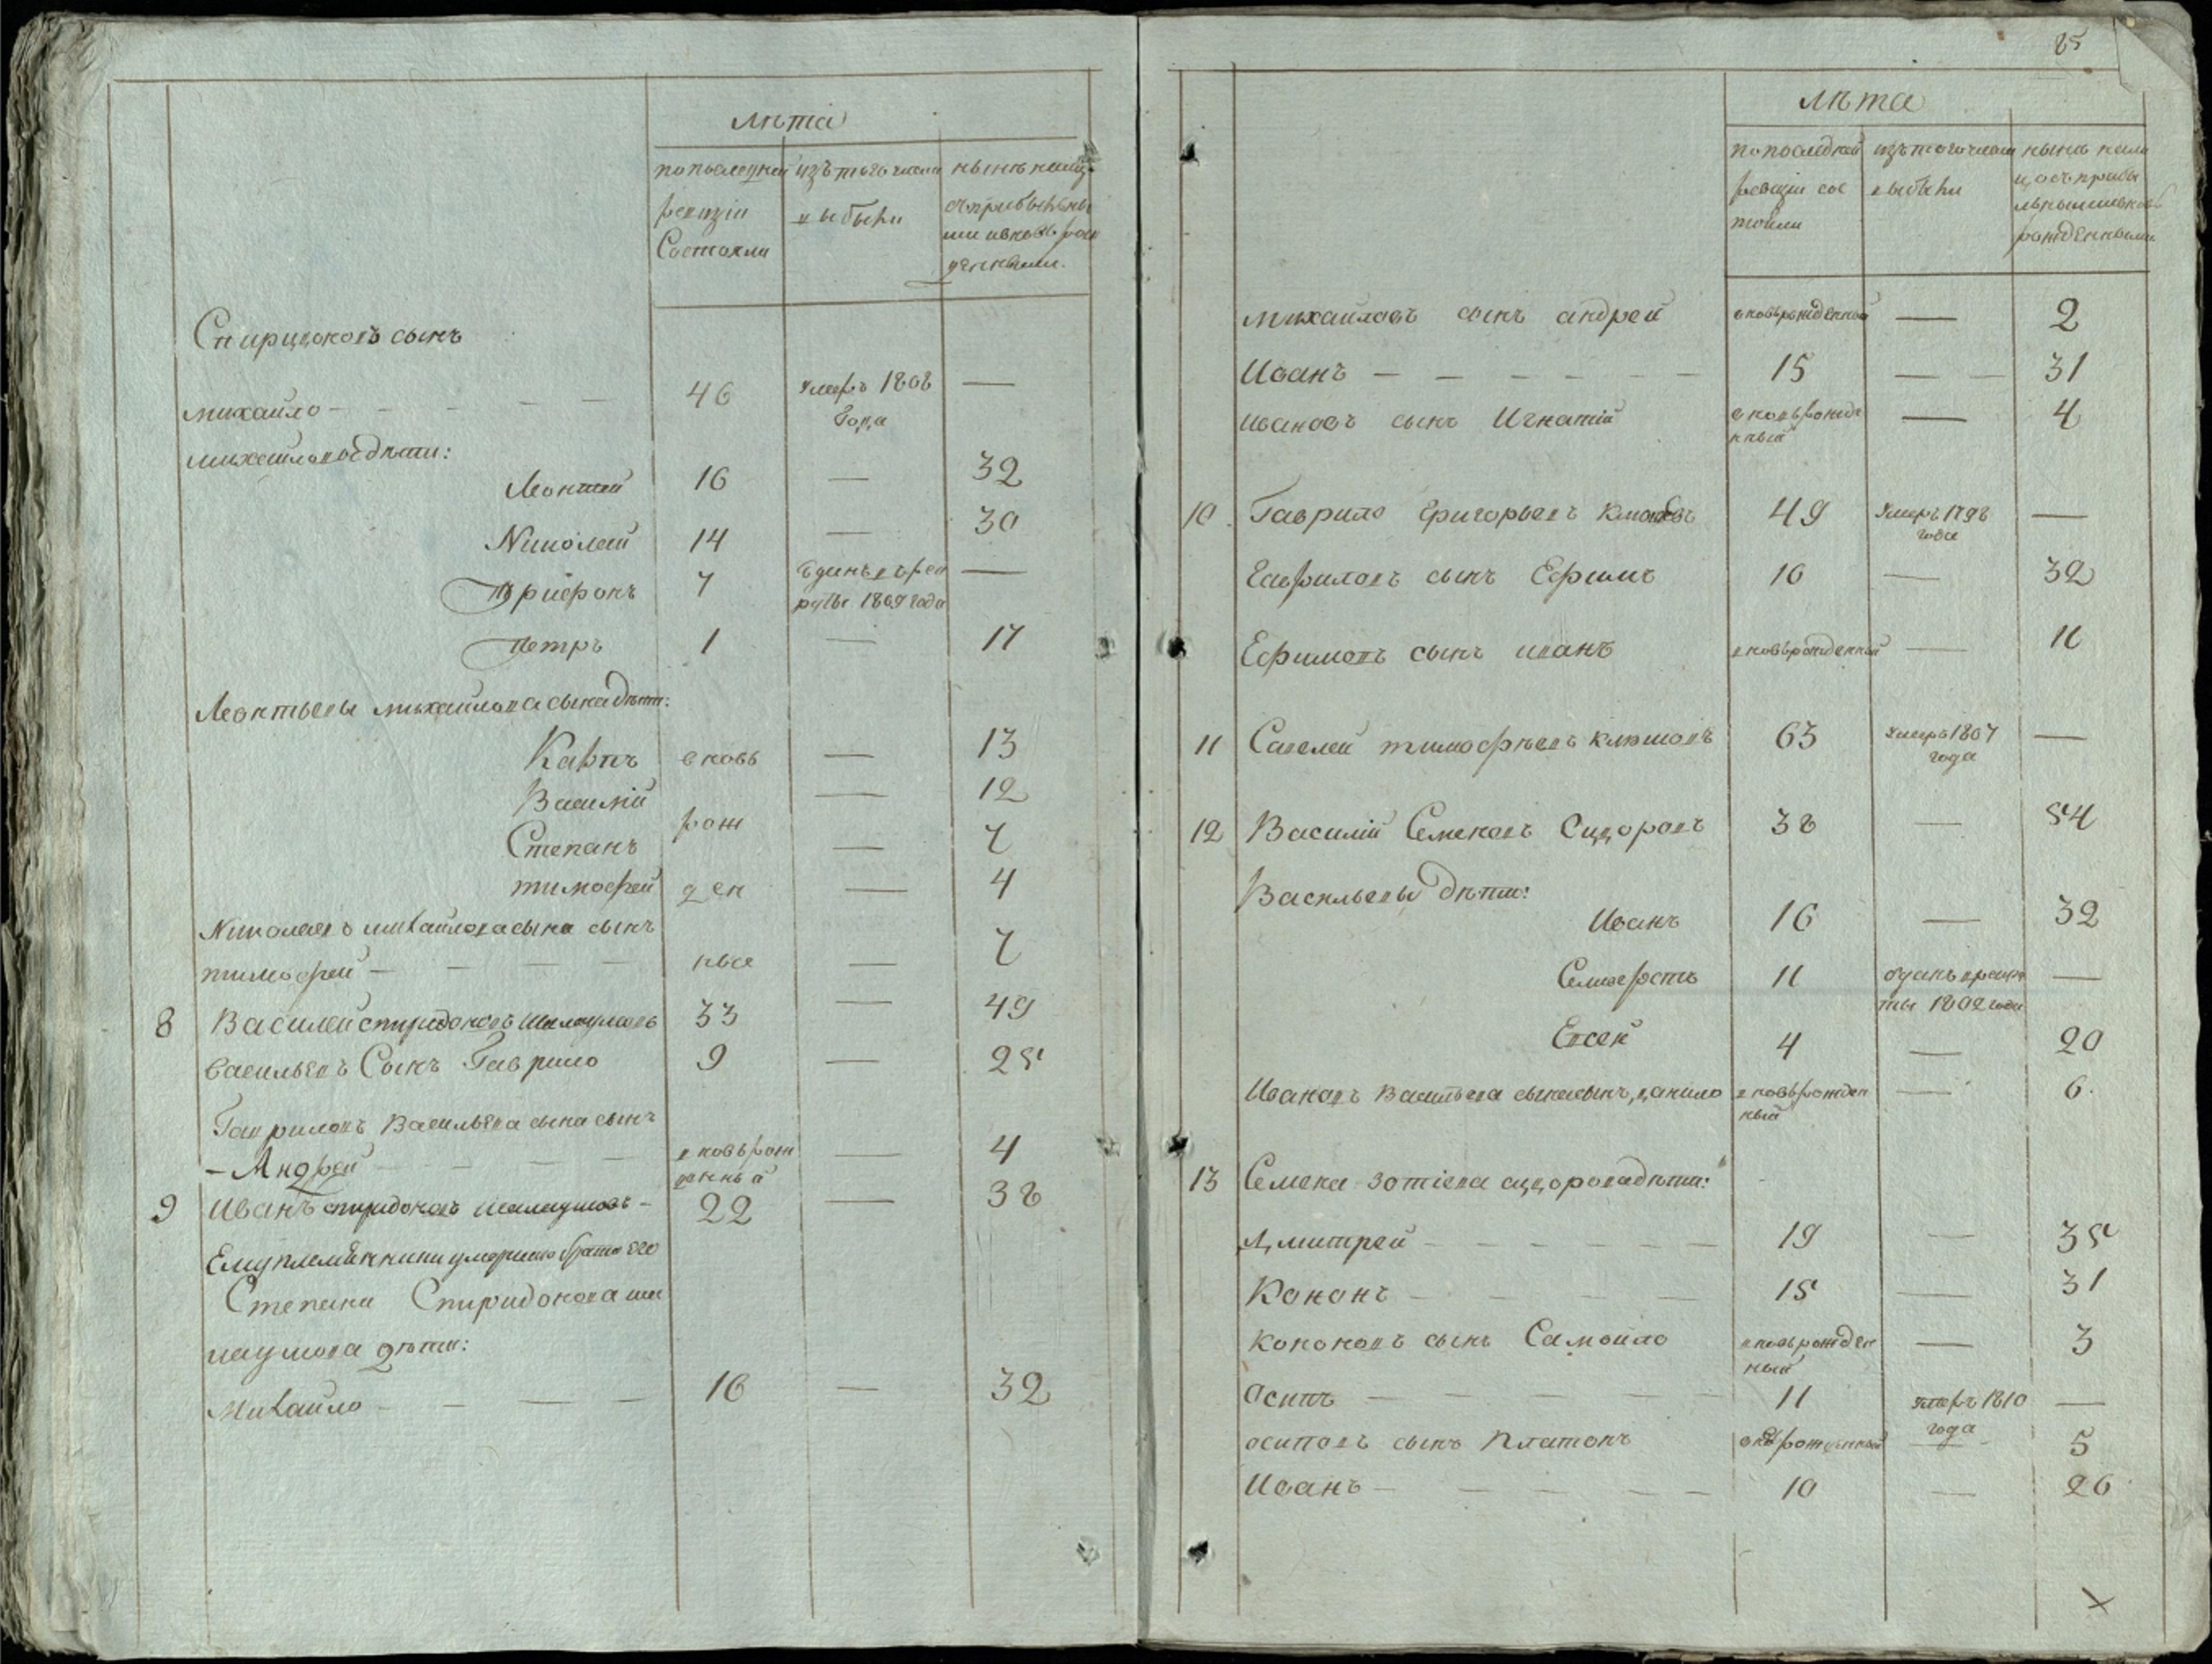 лѣта
по последней
ревизіи
Состояли
изъ того числа
выбыли
Спиридоновъ сынъ
михайло - - - - 46 умеръ 1808 —
года
михайловы дѣти:
Леонтей 16 — 32
Николай 14 — 30
трифонъ 7 —
1809 года
петръ 1 — 17
Леонтьевы михайлова сына дѣти:
Карпъ вновь — 13
Василій — 12
рож
Степанъ — 7
тимофей ден — 4
Николаевъ михайлова сына сынъ
тимофей — — — — ные — 7
8 Василей спиридоновъ 33 — 49
Васильевъ Сынъ Гаврило 9 — 25
Гавриловъ Васильева сына сынъ
- Андрей — — — вновь рож — 4
денный
9 Иванъ спиридоновъ - 22 — 38
Ему племянники умершаго брата его
Степана Спиридонова ша
лаумова дѣти:
Михайло - - — — 16 — 32
85
лѣта
по последней
ревизіи сос
тояли
изъ того числа
выбыли
рожденными
михайловъ сынъ андрей вновьрожденный — 2
Иванъ — — — — — — 15 — — 31
ивановъ сынъ Игнатій вновьрожде — 4
нный
10 Гаврило Григорьевъ 49 Умеръ 1798 —
года
Гавриловъ сынъ Ефимъ 16 — 32
Ефимовъ сынъ иванъ вновьрожденный — 11
11 Савелей тимофѣевъ 63 умеръ 1807 —
года
12 Василій Семеновъ Сидоровъ 38 — 54
Васильевы дѣти:
Иванъ 16 — 32
Селиверстъ 11 отданъ врекру —
ты 1802 года
Евсей 4 — 20
Ивановъ Васильева сына сынъ, данило вновьрожден — 6.
ный
13 Семена зотіева сидорова дѣти:
Дмитрей — — — — — — 19 — 35
Кононъ — — — — 15 — 31
кононовъ сынъ Самойло вновьрожден — 3
ный
Осипъ — — — — — 11 умеръ 1810 —
года
осиповъ сынъ Платонъ вновьрожденный — 5
Иванъ — — — — — 10 — 26